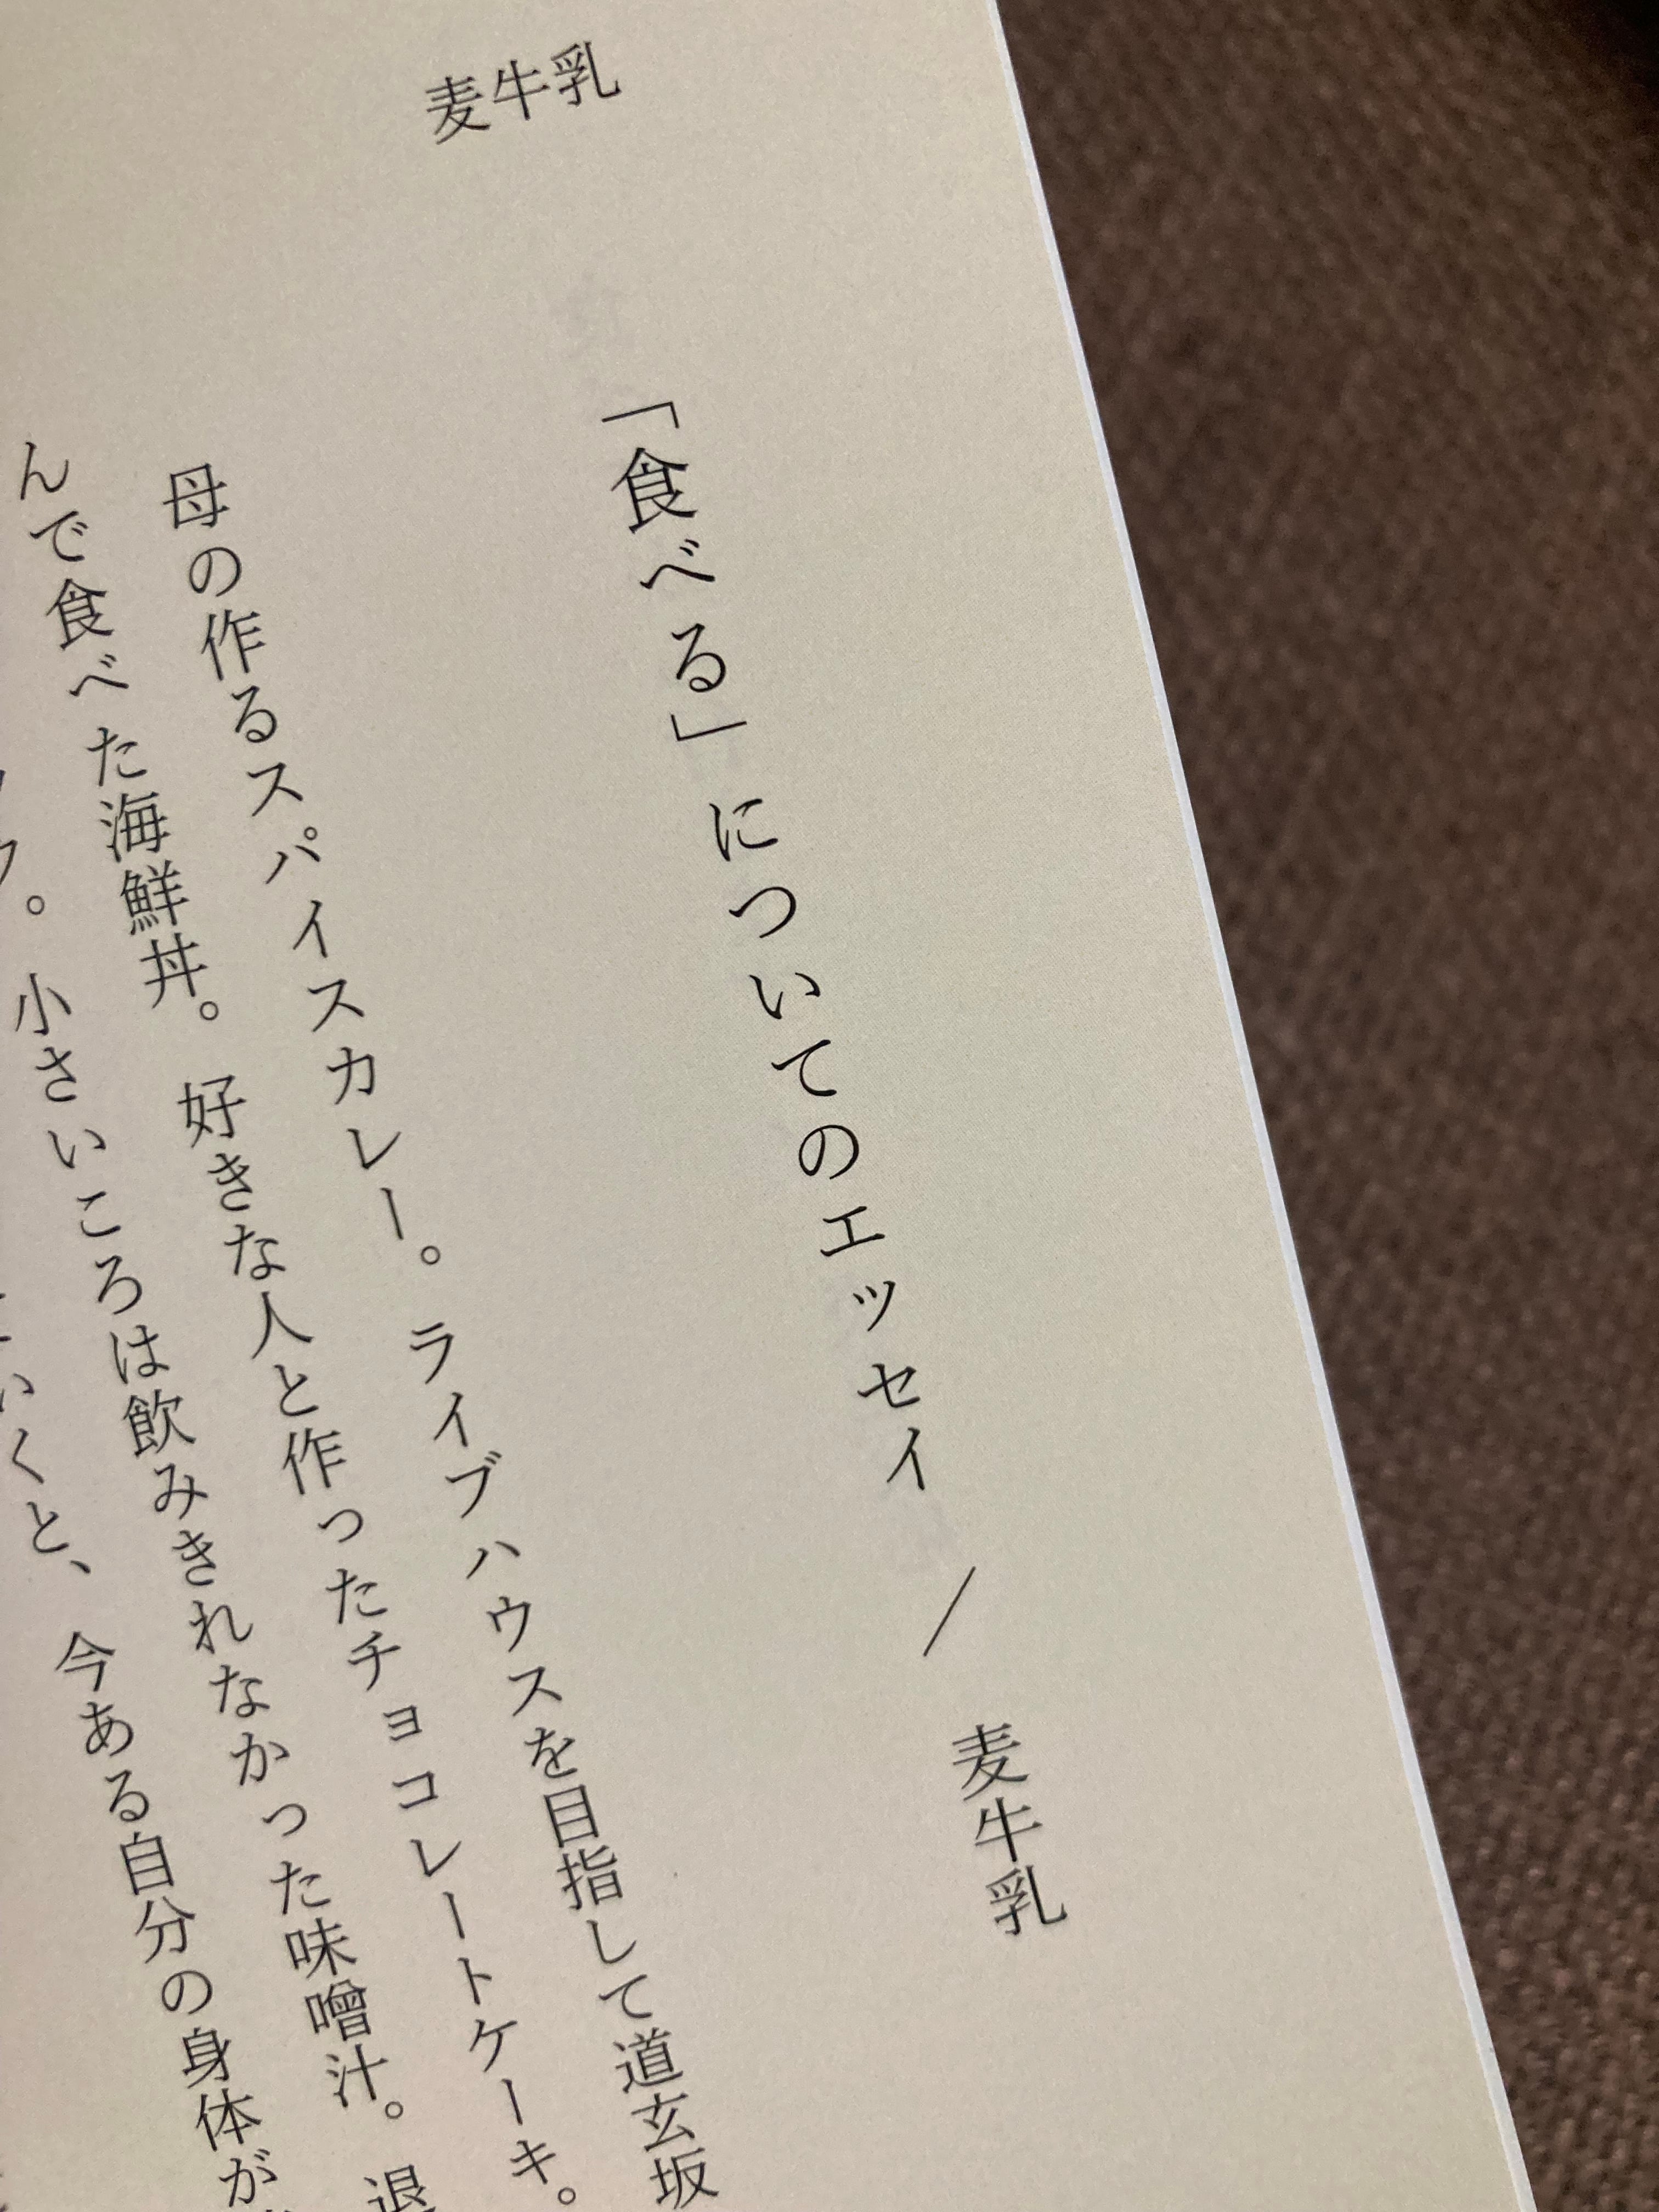 麦牛乳
「食べる」についてのエッセイ ／ 麦牛乳
母の作るスパイスカレー。ライブハウスを目指して道玄坂
んで食べた海鮮丼。好きな人と作ったチョコレートケーキ。
。小さいころは飲みきれなかった味噌汁。退
いくと、今ある自分の身体が